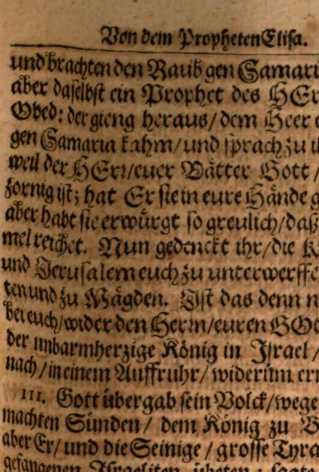 Von dem Propheten Elisa.
und brachten den Raub gen Samari
aber daselbst ein Prophet des HEr
Obed: der gieng heraus/ dem Heer
gen Samaria kahm/ und sprach zu i
weil der HErr/ euer Vätter Gott /
zornig ist; hat Er sie in eure Hände g
aber habt sie erwürgt so greulich/ daß
mel reichet. Nun gedenckt ihr/ die K
und Jerusalem euch zu unterwerffe
ten und zu Mägden. Ist das denn n
bei euch/ wider den Herrn/ euren GOt
der unbarmherzige König in Israel /
nach/ in einem Auffruhr/ widerum er
III. Gott übergab sein Volck/ wege
machten Sünden / dem König zu
aber Er/ und die Seinige / grosse Tyra
gefangenen Israeliten